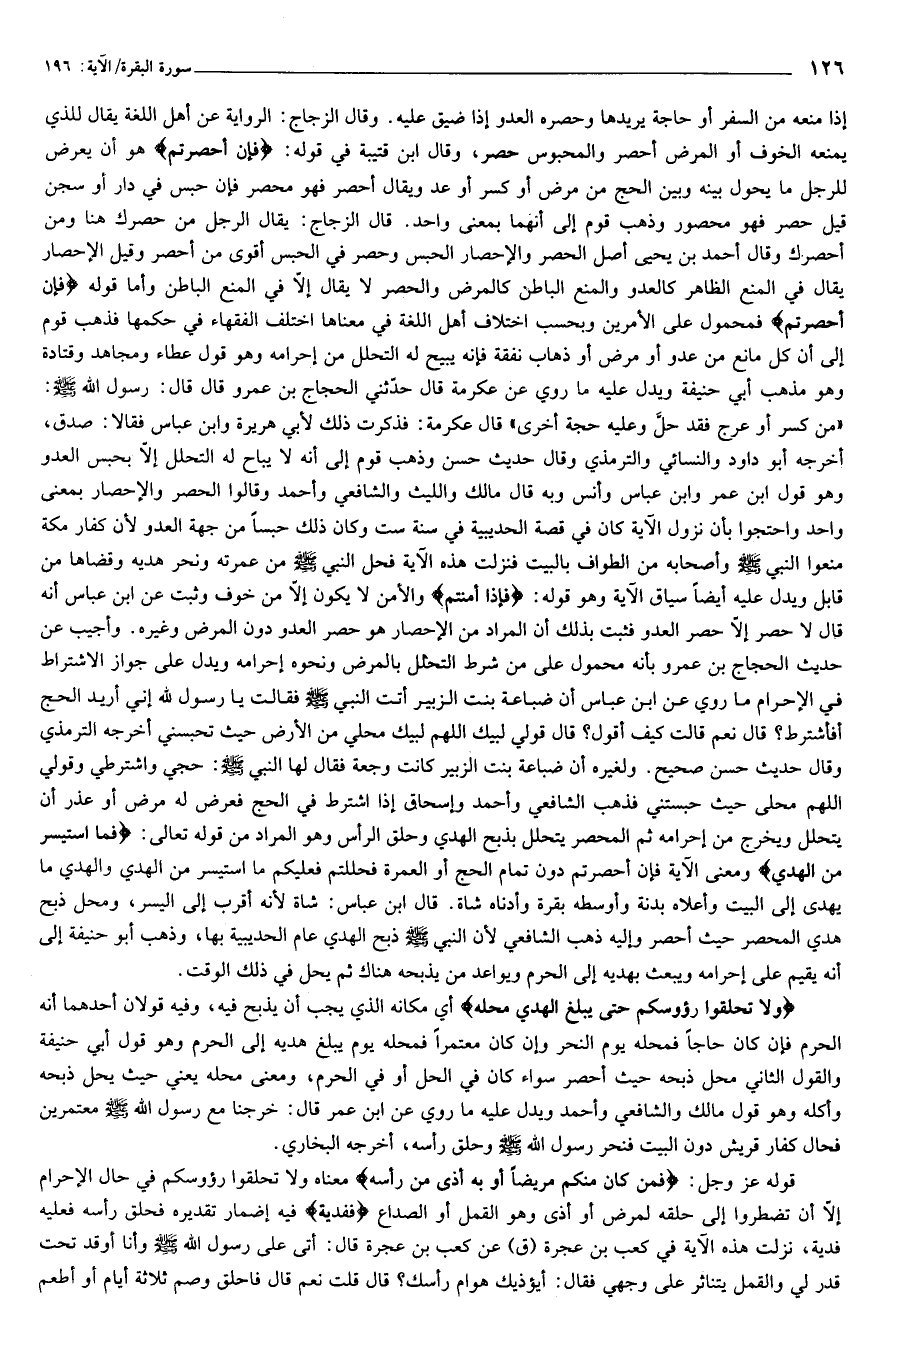 ١٢٦ سورة البقرة/ الآية: ١٩٦
إذا منعه من السفر أو حاجة يريدها وحصره العدو إذا ضيق عليه. وقال الزجاج: الرواية عن أهل اللغة يقال للذي
يمنعه الخوف أو المرض أحصر والمحبوس حصر، وقال ابن قتيبة في قوله: ﴿فإن أحصرتم﴾ هو أن يعرض
للرجل ما يحول بينه وبين الحج من مرض أو كسر أو عد ويقال أحصر فهو محصر فإن حبس في دار أو سجن
قيل حصر فهو محصور وذهب قوم إلى أنهما بمعنى واحد. قال الزجاج: يقال الرجل من حصرك هنا ومن
أحصرك وقال أحمد بن يحيى أصل الحصر والإحصار الحبس وحصر في الحبس أقوى من أحصر وقيل الإحصار
يقال في المنع الظاهر كالعدو والمنع الباطن كالمرض والحصر لا يقال إلاّ في المنع الباطن وأما قوله ﴿فإن
أحصرتم﴾ فمحمول على الأمرين وبحسب اختلاف أهل اللغة في معناها اختلف الفقهاء في حكمها فذهب قوم
إلى أن كل مانع من عدو أو مرض أو ذهاب نفقة فإنه يبيح له التحلل من إحرامه وهو قول عطاء ومجاهد وقتادة
وهو مذهب أبي حنيفة ويدل عليه ما روي عن عكرمة قال حدّثني الحجاج بن عمرو قال قال: رسول الله ﷺ:
«من كسر أو عرج فقد حلَّ وعليه حجة أخرى» قال عكرمة: فذكرت ذلك لأبي هريرة وابن عباس فقالا: صدق،
أخرجه أبو داود والنسائي والترمذي وقال حديث حسن وذهب قوم إلى أنه لا يباح له التحلل إلاّ بحبس العدو
وهو قول ابن عمر وابن عباس وأنس وبه قال مالك والليث والشافعي وأحمد وقالوا الحصر والإحصار بمعنى
واحد واحتجوا بأن نزول الآية كان في قصة الحديبية في سنة ست وكان ذلك حبساً من جهة العدو لأن كفار مكة
منعوا النبي ﷺ وأصحابه من الطواف بالبيت فنزلت هذه الآية فحل النبي ﷺ من عمرته ونحر هديه وقضاها من
قابل ويدل عليه أيضاً سياق الآية وهو قوله: ﴿فإذا أمنتم﴾ والأمن لا يكون إلاّ من خوف وثبت عن ابن عباس أنه
قال لا حصر إلاّ حصر العدو فثبت بذلك أن المراد من الإحصار هو حصر العدو دون المرض وغيره. وأجيب عن
حديث الحجاج بن عمرو بأنه محمول على من شرط التحلل بالمرض ونحوه إحرامه ويدل على جواز الاشتراط
في الإحرام ما روي عن ابن عباس أن ضباعة بنت الزبير أتت النبي ﷺ فقالت يا رسول لله إني أريد الحج
أفأشترط؟ قال نعم قالت كيف أقول؟ قال قولي لبيك اللهم لبيك محلي من الأرض حيث تحبسني أخرجه الترمذي
وقال حديث حسن صحيح. ولغيره أن ضباعة بنت الزبير كانت وجعة فقال لها النبي ﷺ: حجي واشترطي وقولي
اللهم محلى حيث حبستني فذهب الشافعي وأحمد وإسحاق إذا اشترط في الحج فعرض له مرض أو عذر أن
يتحلل ويخرج من إحرامه ثم المحصر يتحلل بذبح الهدي وحلق الرأس وهو المراد من قوله تعالى: ﴿فما استيسر
من الهدي﴾ ومعنى الآية فإن أحصرتم دون تمام الحج أو العمرة فحللتم فعليكم ما استيسر من الهدي والهدي ما
يهدى إلى البيت وأعلاه بدنة وأوسطه بقرة وأدناه شاة. قال ابن عباس: شاة لأنه أقرب إلى اليسر، ومحل ذبح
هدي المحصر حيث أحصر وإليه ذهب الشافعي لأن النبي ﷺ ذبح الهدي عام الحديبية بها، وذهب أبو حنيفة إلى
أنه يقيم على إحرامه ويبعث بهديه إلى الحرم ويواعد من يذبحه هناك ثم يحل في ذلك الوقت.
﴿ولا تحلقوا رؤوسكم حتى يبلغ الهدي محله﴾ أي مكانه الذي يجب أن يذبح فيه، وفيه قولان أحدهما أنه
الحرم فإن كان حاجاً فمحله يوم النحر وإن كان معتمراً فمحله يوم يبلغ هديه إلى الحرم وهو قول أبي حنيفة
والقول الثاني محل ذبحه حيث أحصر سواء كان في الحل أو في الحرم، ومعنى محله يعني حيث يحل ذبحه
وأكله وهو قول مالك والشافعي وأحمد ويدل عليه ما روي عن ابن عمر قال: خرجنا مع رسول الله ﷺ معتمرين
فحال كفار قريش دون البيت فنحر رسول الله ﷺ وحلق رأسه، أخرجه البخاري.
قوله عز وجل: ﴿فمن كان منكم مريضاً أو به أذى من رأسه﴾ معناه ولا تحلقوا رؤوسكم في حال الإحرام
إلاّ أن تضطروا إلى حلقه لمرض أو أذى وهو القمل أو الصداع ﴿ففدية﴾ فيه إضمار تقديره فحلق رأسه فعليه
فدية، نزلت هذه الآية في كعب بن عجرة (ق) عن كعب بن عجرة قال: أتى على رسول الله ﷺ وأنا أوقد تحت
قدر لي والقمل يتناثر على وجهي فقال: أيؤذيك هوام رأسك؟ قال قلت نعم قال فاحلق وصم ثلاثة أيام أو أطعم